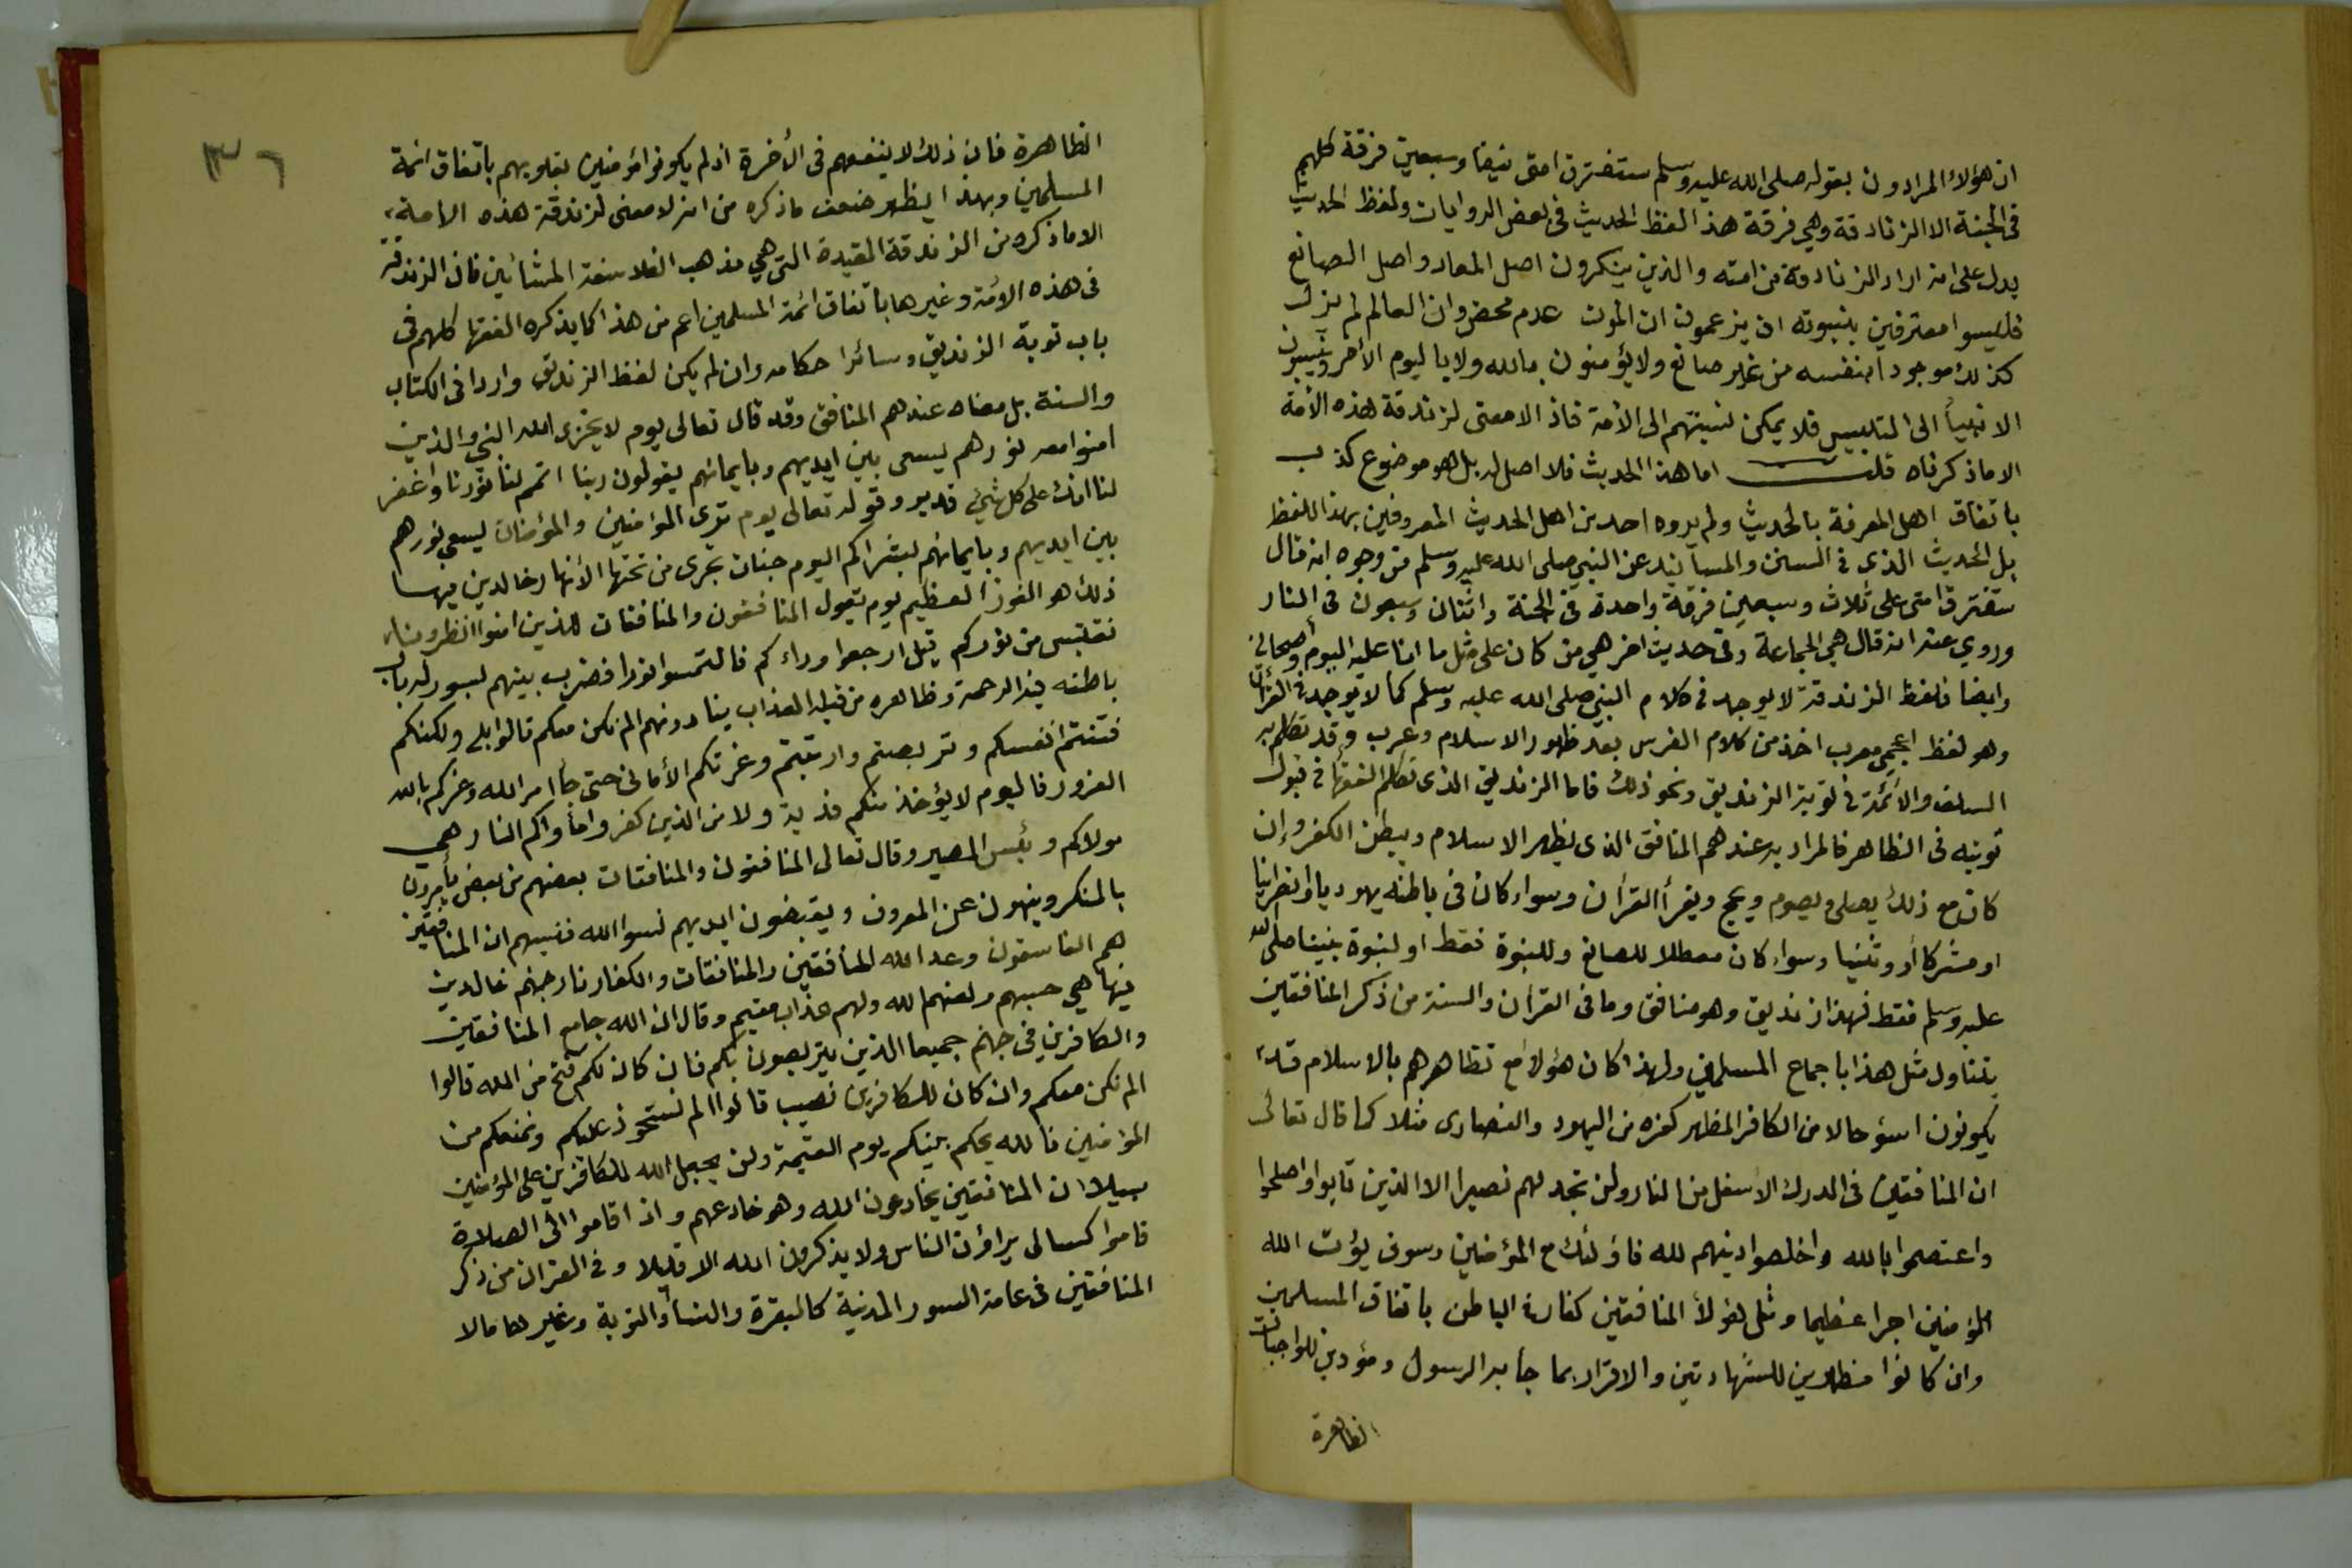 ان هؤلاء المرادون بقوله صلى الله عليه وسلم ستفترق امتى نيفا وسبعين فرقة كلهم
فى الجنة الا الزنادقة وهي فرقة هذا لفظ الحديث فى بعض الروايات ولفظ الحديث
يدل على انه اراد الزنادقة من امته والذين ينكرون اصل المعاد واصل الصانع
فليسوا معترفين بنبوته ان يزعمون ان الموت عدم محض وان العالم لم يزل
كذلك موجودا بنفسه من غير صانع ولا يؤمنون بالله ولا باليوم الأخر وينسبون
الانبيأ الى التلبيس فلا يمكن نسبتهم الى الأمة فاذ الا معنى لزندقة هذه الأمة
الا ما ذكرناه قلت اما هذا الحديث فلا اصل له بل هو موضوع كذب
باتفاق اهل المعرفة بالحديث ولم يروه احد من اهل الحديث المعروفين بهذا اللفظ
بل الحديث الذى فى السنن والمسانيد عن النبي صلى الله عليه وسلم من وجوه انه قال
ستفترق امتى على ثلاث وسبعين فرقة واحدة فى الجنة واثنتان وسبعون فى النار
وروي عنه انه قال هي الجماعة وفى حديث اخر هي من كان على مثل ما انا عليه اليوم وأصحابي
وايضا فلفظ الزندقة لا يوجد فى كلام النبي صلى الله عليه وسلم كما لا يوجد فى القرأن
وهو لفظ اعجمي معرب اخذ من كلام الفرس بعد ظهور الاسلام وعرب وقد تكلم به
السلف والأئمة فى توبة الزنديق ونحو ذلك فاما الزنديق الذى تكلم الفقهأ فى قبول
توبته فى الظاهر فالمراد به عندهم المنافق الذى يظهر الاسلام ويبطن الكفر وإن
كان مع ذلك يصلى ويصوم ويحج ويقرأ القرأن وسواء كان فى باطنه يهوديا او نصرانيا
او مشركا أو وثنيا وسواء كان معطلا للصانع وللنبوة فقط او لنبوة نبينا صلى الله
عليه وسلم فقط فهذا زنديق وهو منافق وما فى القرأن والسنة من ذكر المنافقين
يتناول مثل هذا باجماع المسلمين ولهذا كان هؤلاء مع تظاهرهم بالاسلام قد
يكونون اسؤ حالا من الكافر المظهر كفره من اليهود والنصارى مثلا كما قال تعالى
ان المنافقين فى الدرك الأسفل من النار ولن تجد لهم نصيرا الا الذين تابوا واصلحوا
واعتصموا بالله واخلصوا دينهم لله فاؤلئك مع المؤمنين وسوف يؤت الله
المؤمنين اجرا عظيما ومثل هؤلأ المنافقين كفار فى الباطن باتفاق المسلمين
وان كانوا مظهرين للشهادتين والاقرار بما جأ به الرسول ومؤدين للواجبات
الظاهرة
٣٦
الظاهرة فان ذلك لا ينفعهم فى الأخرة اذ لم يكونوا مؤمنين بقلوبهم باتفاق ائمة
المسلمين وبهذا يظهر ضعف ما ذكره من انه لا معنى لزندقة هذه الامة
الا ما ذكره من الزندقة المقيدة التى هي مذهب الفلاسفة المشائين فان الزندقة
فى هذه الأمة وغيرها باتفاق ائمة المسلمين اعم من هذا كما يذكره الفقها كلهم فى
باب توبة الزنديق وسائر احكامه وان لم يكن لفظ الزنديق واردا فى الكتاب
والسنة بل معناه عندهم المنافق وقد قال تعالى يوم لا يخزى الله النبي والذين
امنوا معه نورهم يسعى بين ايديهم وبايمانهم يقولون ربنا اتمم لنا نورنا واغفر
لنا انك على كل شيئ قدير وقوله تعالى يوم ترى المؤمنين والمؤمنات يسعى نورهم
بين ايديهم وبايمانهم بشراكم اليوم جنات تجرى من تحتها الأنهار خالدين فيها
ذلك هو الفوز العظيم يوم يقول المنافقون والمنافقات للذين امنوا انظرونا
نقتبس من نوركم قيل ارجعوا وراءكم فالتمسوا نورا فضرب بينهم بسور له باب
باطنه فيه الرحمة وظاهره من قبله العذاب ينادونهم الم نكن معكم قالوا بلى ولكنكم
فتنتم انفسكم وتربصتم وارتبتم وغرتكم الأمانى حتى جأ امر الله وغركم بالله
الغرور فاليوم لا يؤخذ منكم فدية ولا من الذين كفروا مأواكم النار هي
مولاكم وبئس المصير وقال تعالى المنافقون والمنافقات بعضهم من بعض يأمرون
بالمنكر وينهون عن المعروف ويقبضون ايديهم نسوا الله فنسيهم ان المنافقين
هم الفاسقون وعد الله المنافقين والمنافقات والكفار نار جهنم خالدين
فيها هي حسبهم ولعنهم الله ولهم عذاب مقيم وقال ان الله جامع المنافقين
والكافرين فى جهنم جميعا الذين يتربصون بكم فان كان لكم فتح من الله قالوا
الم نكن معكم وان كان للكافرين نصيب قالوا الم نستحوذ عليكم ونمنعكم من
المؤمنين فالله يحكم بينكم يوم القيمة ولن يجعل الله للكافرين على المؤمنين
سبيلا ان المنافقين يخادعون الله وهو خادعهم واذا قاموا الى الصلاة
قاموا كسالى يراؤن الناس ولا يذكرون الله الا قليلا وفى القرأن من ذكر
المنافقين فى عامة السور المدنية كالبقرة والنسأ والتوبة وغيرها ما لا